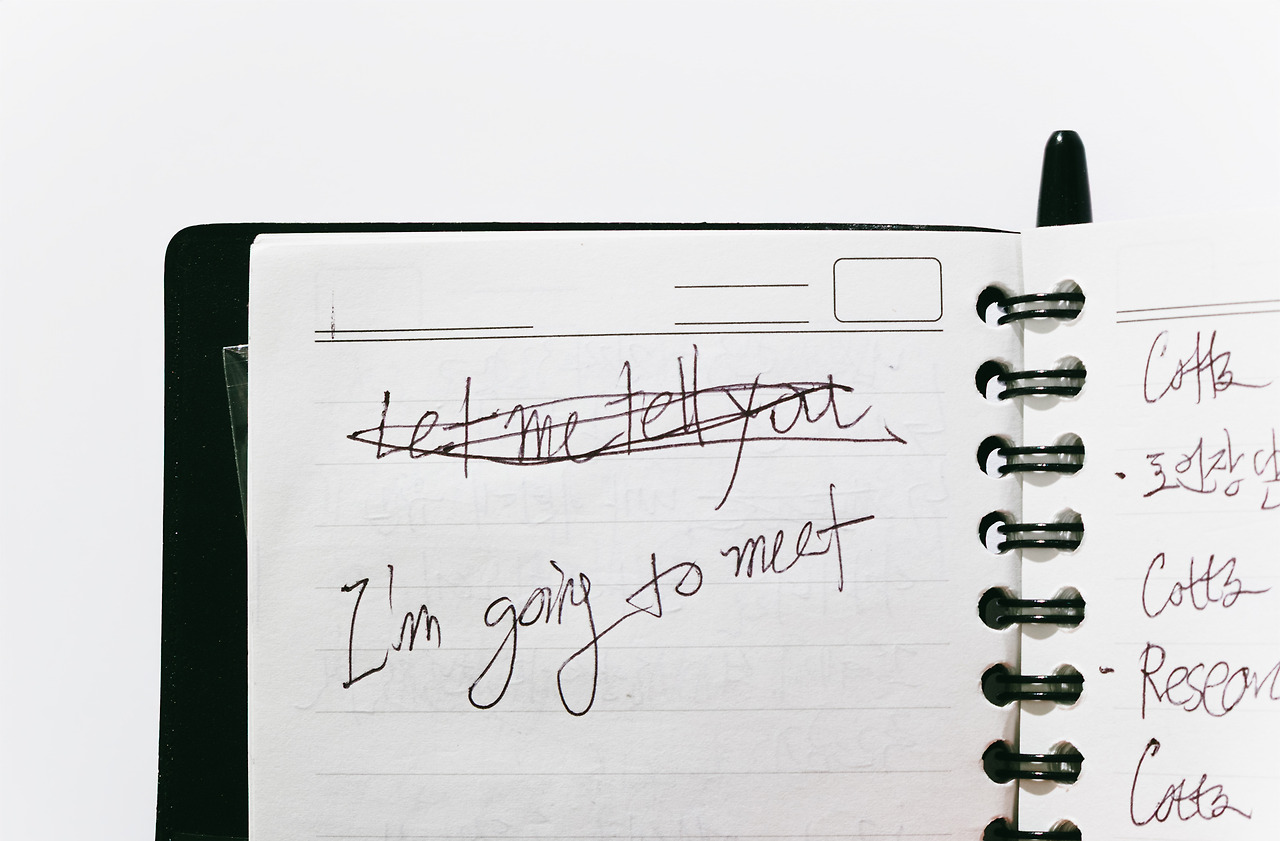 Let me tell you.
I'm going to meet
Cotta
· 도연장
Cotta
- Resear
Cotta